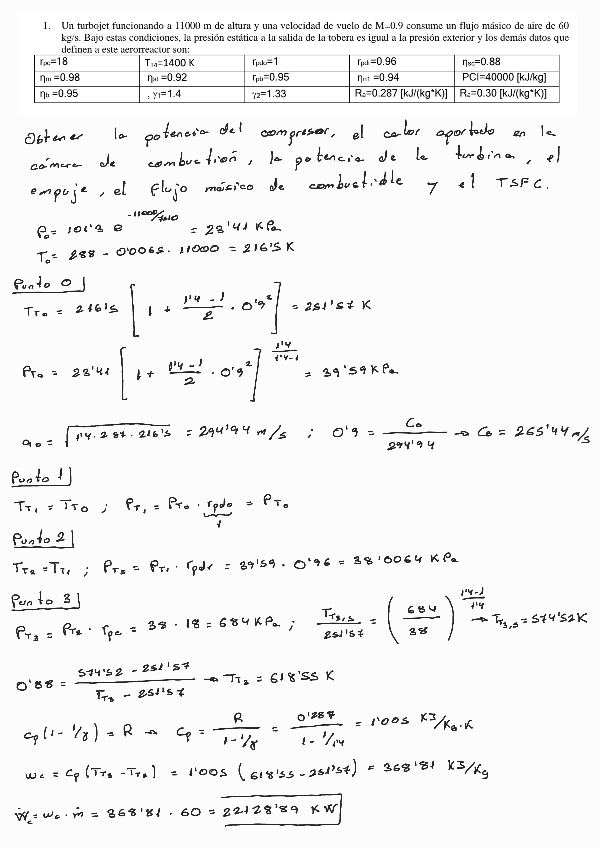 1. Un turbojet funcionando a 11000 m de altura y una velocidad de vuelo de M=0.9 consume un flujo másico de aire de 60
kg/s. Bajo estas condiciones, la presión estática a la salida de la tobera es igual a la presión exterior y los demás datos que
definen a este aerorreactor son:
rpc=18 TT4=1400 K rpdo=1 rpd1=0.96 ηsc=0.88
ηm =0.98 ηst =0.92 rpb=0.95 ηn1 =0.94 PCI=40000 [kJ/kg]
ηb =0.95 , γ1=1.4 γ2=1.33 Ra=0.287 [kJ/(kg*K)] Rc=0.30 [kJ/(kg*K)]
Obtener la potencia del compresor, el calor aportado en la
cámara de combustión, la potencia de la turbina, el
empuje, el flujo másico de combustible y el TSFC.
P₀ = 101'3 e^(-11000/7010) = 23'41 KPa
T₀ = 288 - 0'0065 · 11000 = 216'5 K
Punto 0
TT0 = 216'5 [1 + (1'4 - 1)/2 · 0'9²] = 251'57 K
PT0 = 23'41 [1 + (1'4 - 1)/2 · 0'9²]^(1'4/(1'4-1)) = 39'59 KPa
a₀ = √(1'4 · 287 · 216'5) = 294'94 m/s ; 0'9 = C₀/294'94 → C₀ = 265'44 m/s
Punto 1
TT1 = TT0 ; PT1 = PT0 · rpdo = PT0
1
Punto 2
TT2 = TT1 ; PT2 = PT1 · rpd1 = 39'59 · 0'96 = 38'0064 KPa
Punto 3
PT3 = PT2 · rpc = 38 · 18 = 684 KPa ; TT3,s/251'57 = (684/38)^((1'4-1)/1'4) → TT3,s = 574'52 K
0'88 = (574'52 - 251'57)/(TT3 - 251'57) → TT3 = 618'55 K
cp(1 - 1/γ) = R → cp = R/(1 - 1/γ) = 0'287/(1 - 1/1'4) = 1'005 KJ/Kg·K
wc = cp (TT3 - TT2) = 1'005 (618'55 - 251'57) = 368'81 KJ/Kg
Ẇc = wc · ṁ = 368'81 · 60 = 22128'89 KW